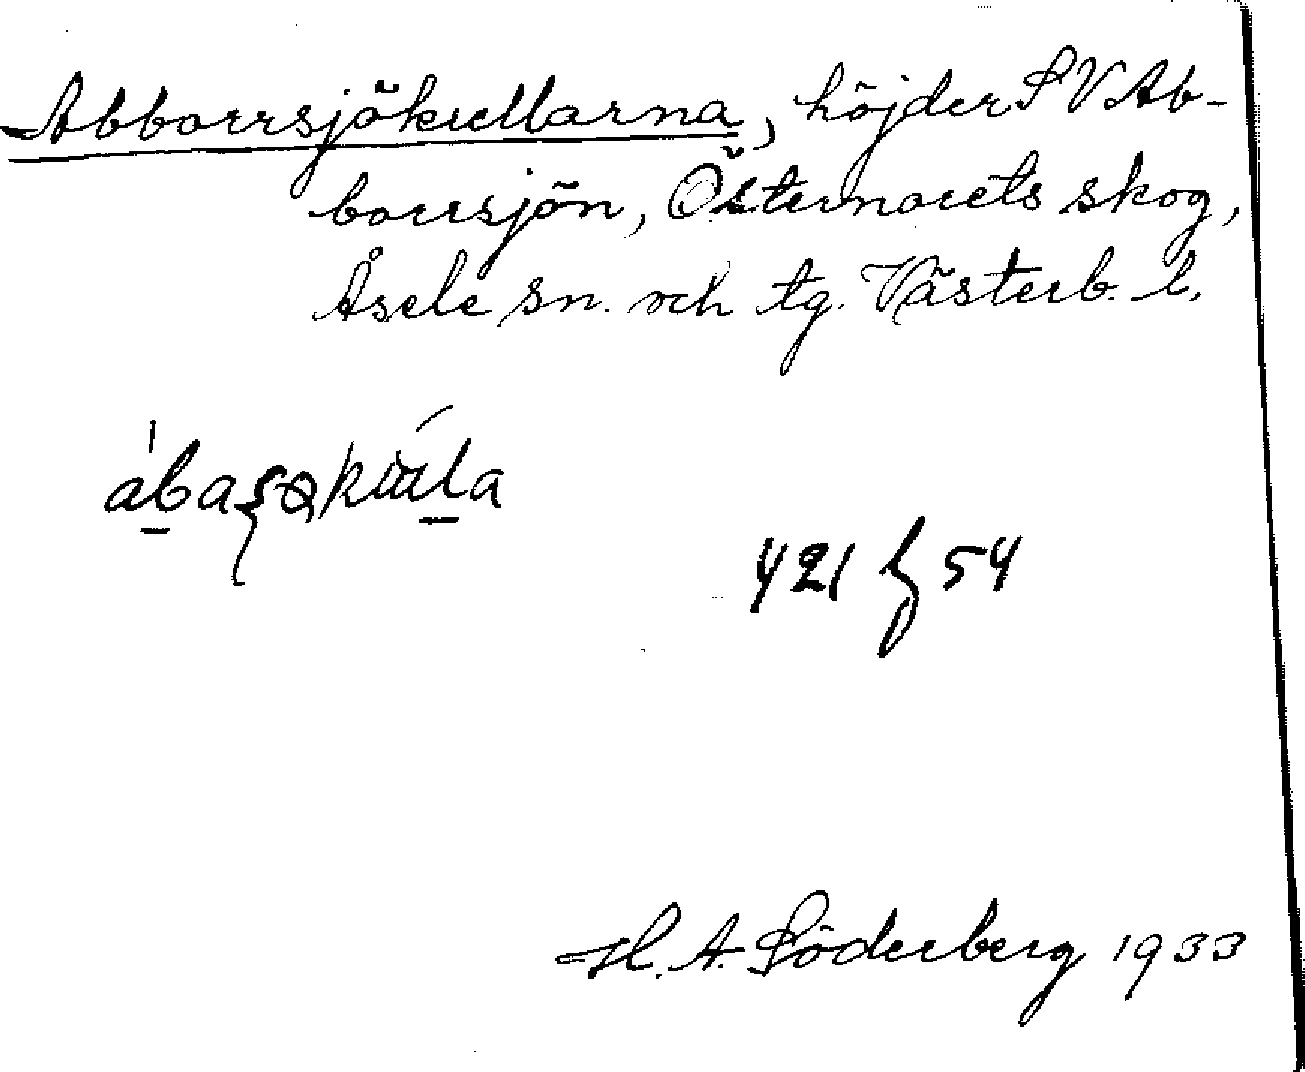 Abborrsjökullarna, höjder SV Ab-
borrsjön, Östernorets skog,
Åsele sn. och tg. Västerb. l.
421 54
H. A. Söderberg 1933